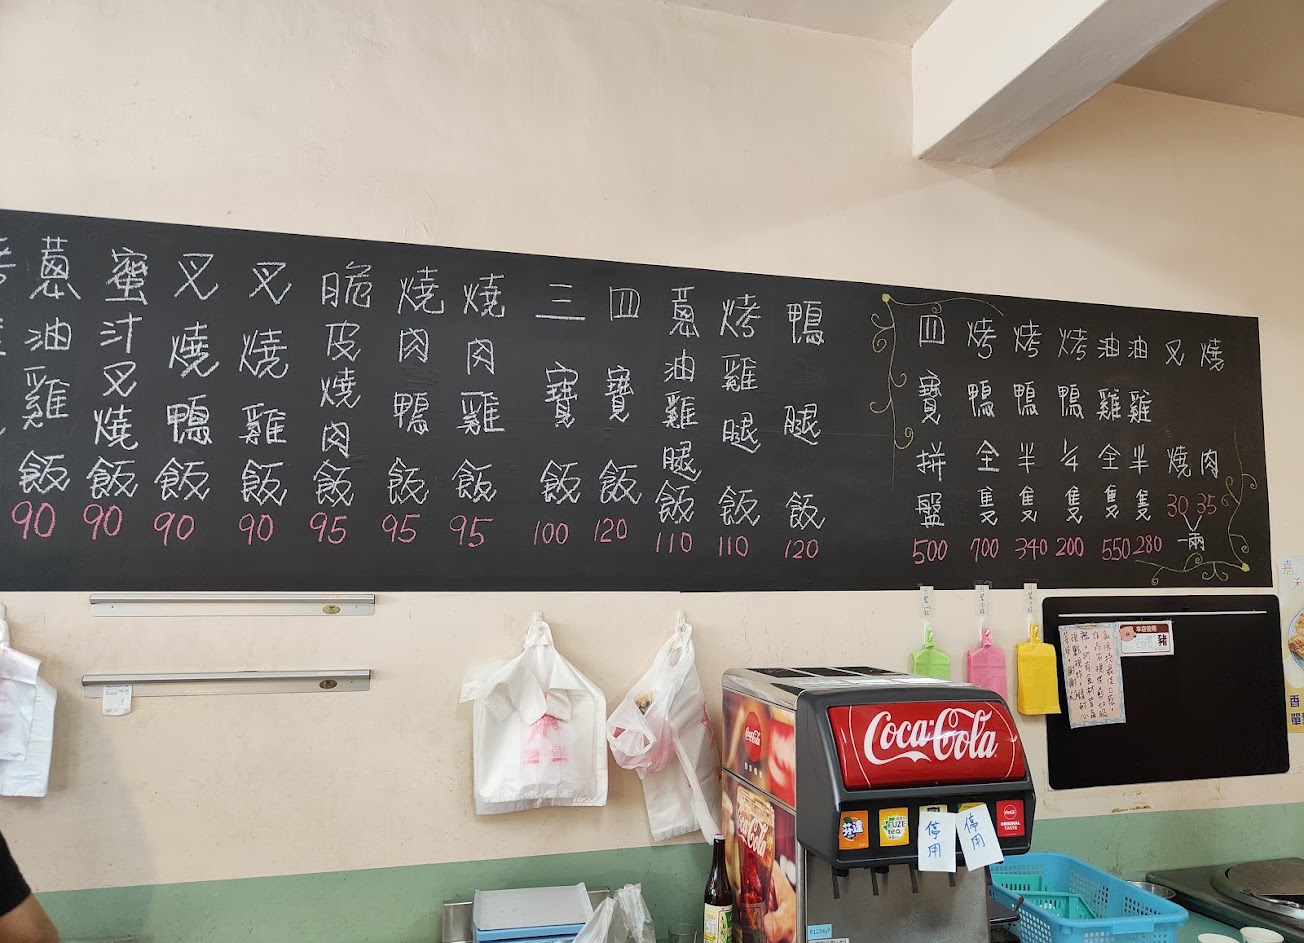 蔥油雞飯 90
蜜汁叉燒飯 90
叉燒鴨飯 90
叉燒雞飯 90
脆皮燒肉飯 95
燒肉鴨飯 95
燒肉雞飯 95
三寶飯 100
四寶飯 120
蔥油雞腿飯 110
烤雞腿飯 110
鴨腿飯 120
四寶拼盤 500
烤鴨全隻 700
烤鴨半隻 340
烤鴨1/4隻 200
油雞全隻 550
油雞半隻 280
叉燒 30
燒肉 35
一兩
本店使用
豬
Coca-Cola
Coca-Cola
Coca-Cola
芬達
FUZE tea
停用
停用
ORIGINAL TASTE
香
單